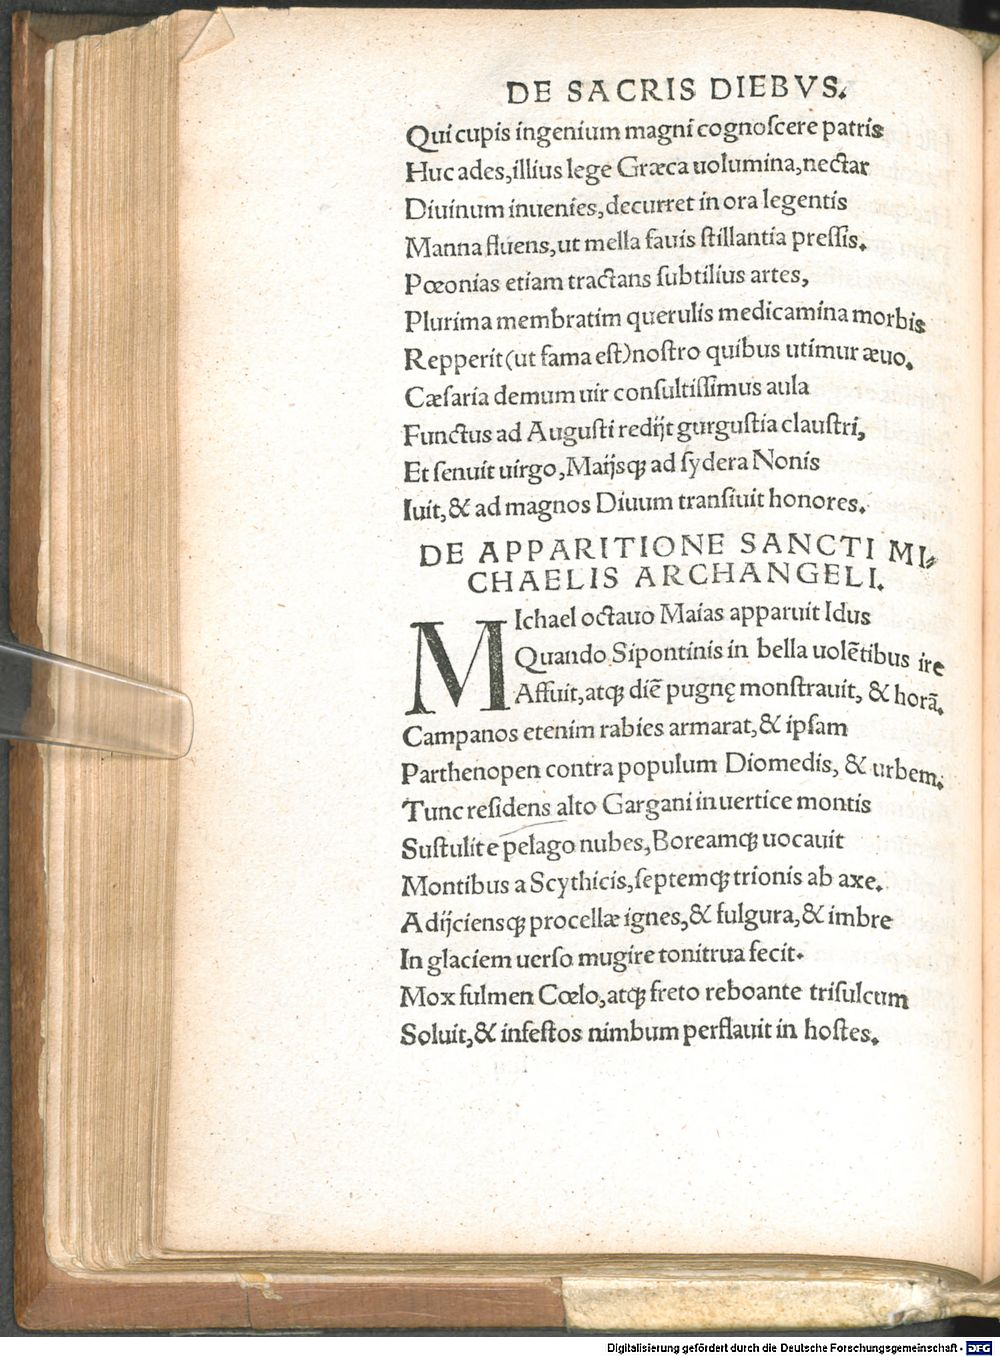 DE SACRIS DIEBVS.
Qui cupis ingenium magni cognoſcere patris
Huc ades,illius lege Græca uolumina,nectar
Diuinum inuenies,decurret in ora legentis
Manna fluens,ut mella fauis ſtillantia preſſis.
Pœonias etiam tractans ſubtilius artes,
Plurima membratim querulis medicamina morbis
Repperit(ut fama eſt)noſtro quibus utimur æuo.
Cæſaria demum uir conſultiſſimus aula
Functus ad Auguſti redijt gurguſtia clauſtri,
Et ſenuit uirgo,Maijsqꝫ ad ſydera Nonis
Iuit,& ad magnos Diuum tranſiuit honores.
DE APPARITIONE SANCTI MI⸗
CHAELIS ARCHANGELI.
MIchael octauo Maias apparuit Idus
Quando Sipontinis in bella uolẽtibus ire
Affuit,atqꝫ diẽ pugnę monſtrauit, & horã.
Campanos etenim rabies armarat,& ipſam
Parthenopen contra populum Diomedis, & urbem.
Tunc reſidens alto Gargani in uertice montis
Suſtulit e pelago nubes,Boreamqꝫ uocauit
Montibus a Scythicis,ſeptemqꝫ trionis ab axe.
Adijciensqꝫ procellæ ignes,& fulgura,& imbre
In glaciem uerſo mugire tonitrua fecit.
Mox fulmen Cœlo,atqꝫ freto reboante triſulcum
Soluit,& infeſtos nimbum perflauit in hoſtes.
Digitalisierung gefördert durch die Deutsche Forschungsgemeinschaft - DFG